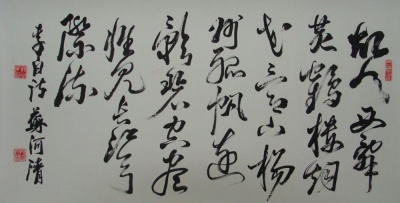 故人西辭
黄鶴樓烟
花三月下揚
州孤帆遠
影碧空盡
惟見長江天
際流
李白诗 蘇河清